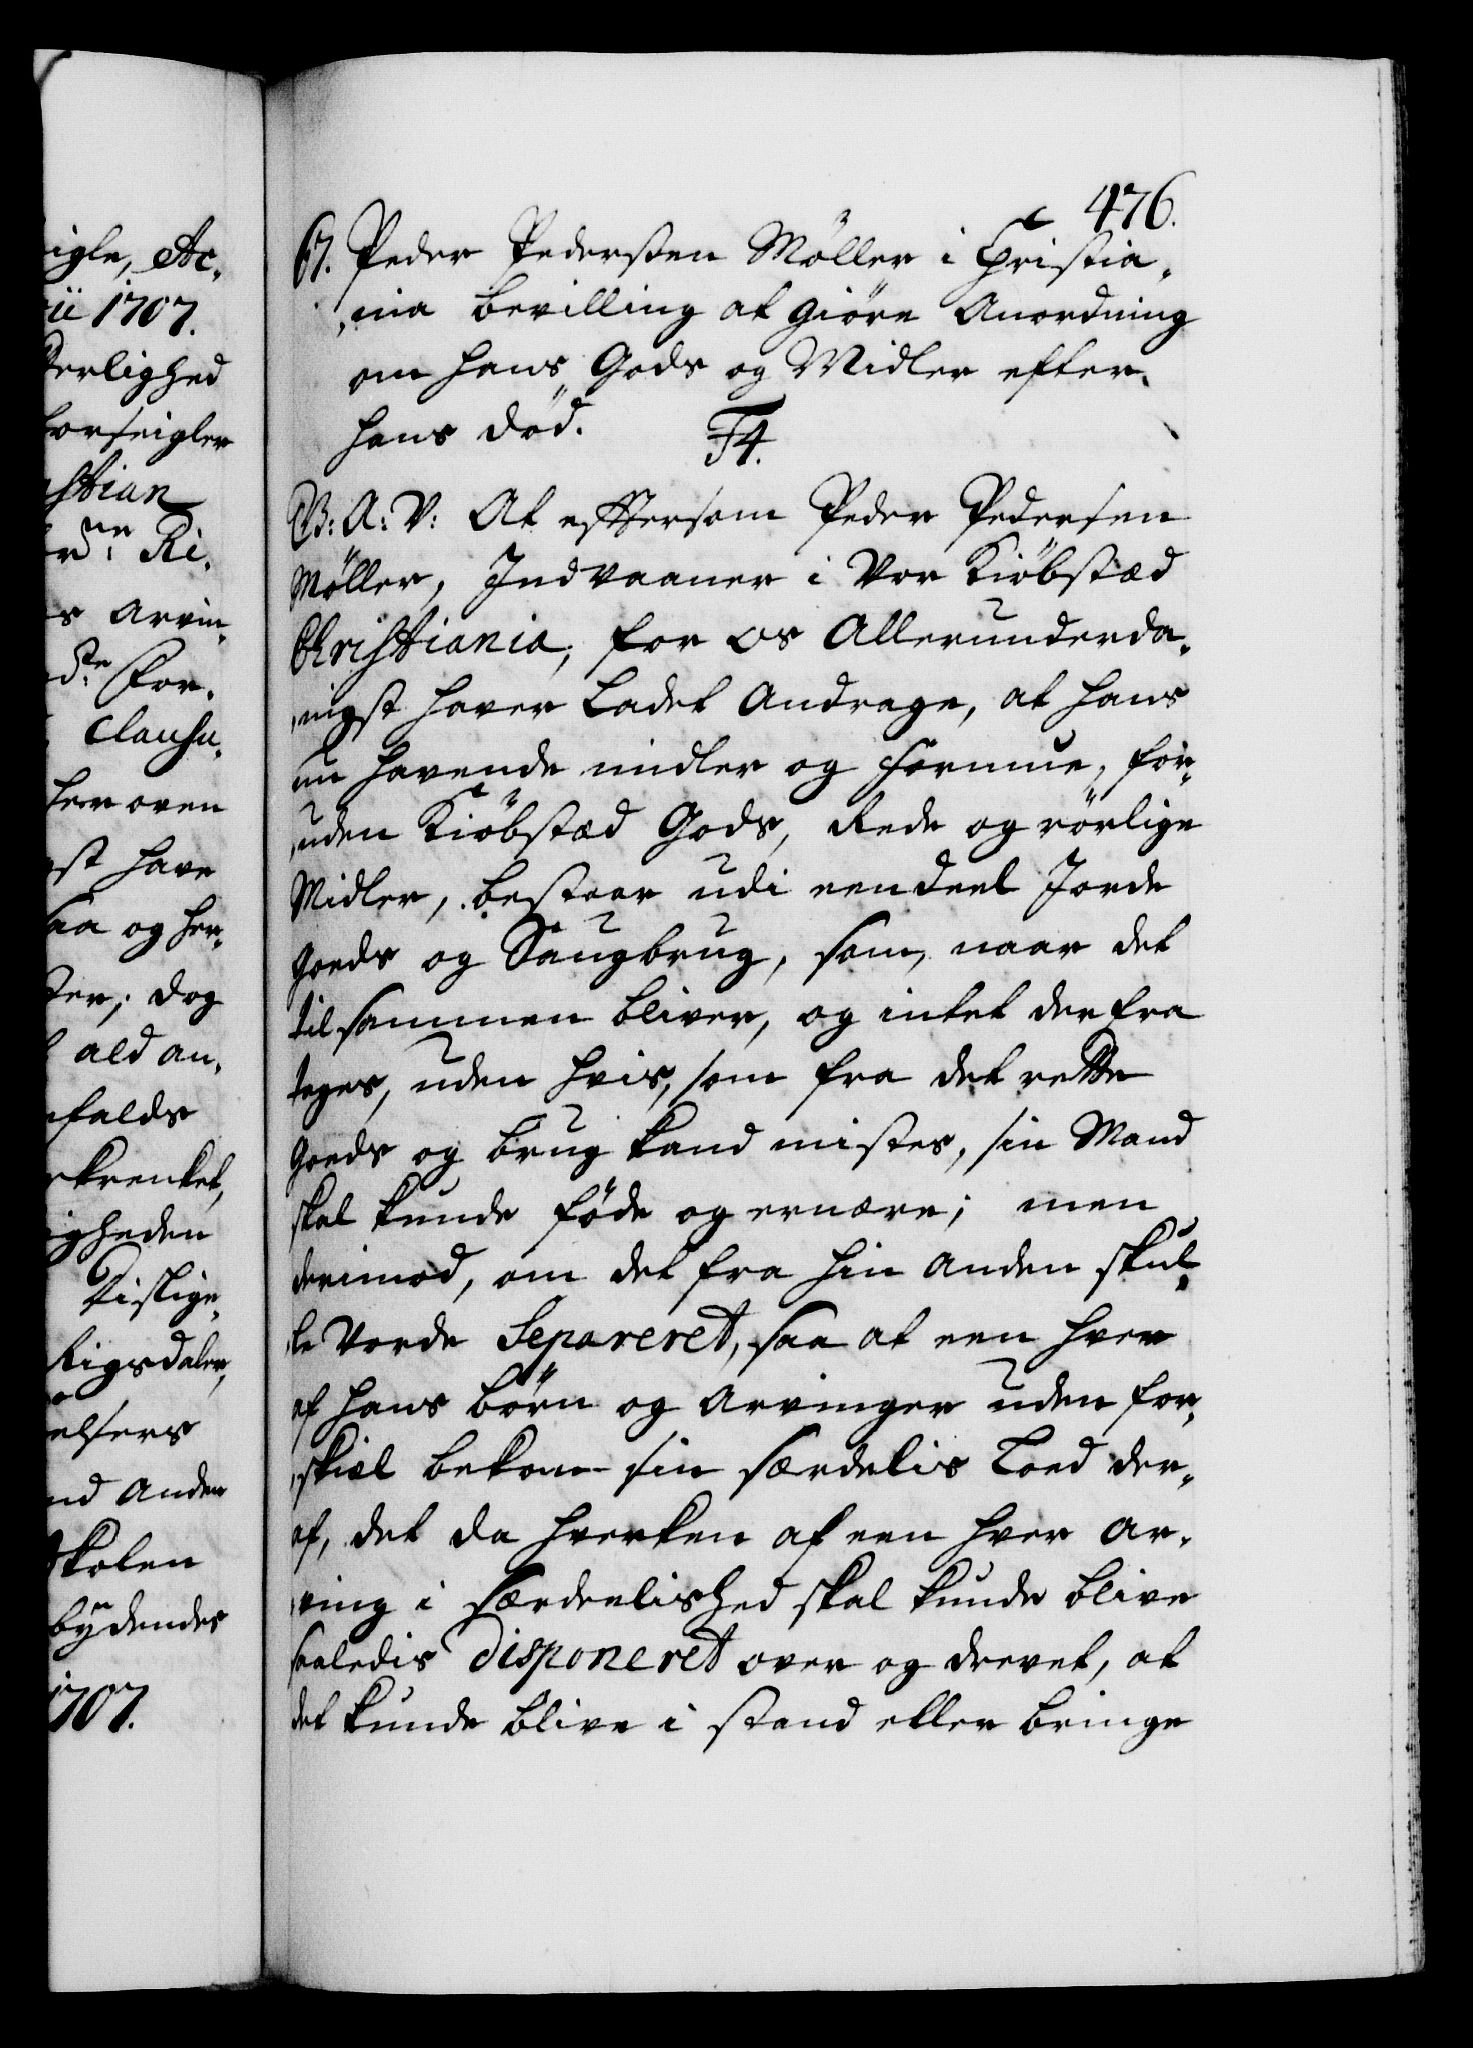 igle, Ac,
ii 1707.
erlighed
forseigler
istian
ne Ri,
s Arvin,
de For,
Clausu,
her oven
st have
saa og her,
ter, dog
ald an,
nfalds
krenket,
igheden
Tislige,
Rigsdaler,
elsers
nd Anden
Skolen
bydendes
1707.
476.
67. Peder Pedersen Møller i Christia,
,nia bevilling at giøre Anordning
om hans Gods og Midler efter
hans død.
F4.
G: A: V: At eftersom Peder Pedersen
Møller, Indvaaner i Vor Kiøbstæd
Christiania, for os Allerunderda,
,nigst haver Ladet Andrage, at hans
nu havende midler og Formue, for,
,uden Kiøbstæd Gods, Rede og rörlige
Midler, bestaar udi een deel Jorde
Goeds og Saugbrug, som, naar det
tilsammen bliver, og intet derfra
tages, uden hvis, som fra det rette
Goeds og brug kand mistes, sin Mand
skal kunde föde og ernære; men
derimod, om det fra hin anden skul,
,le Vorde Separeret, saa at een hver
af hans börn og Arvinger uden for,
,skiel bekom sin særdelis Loed der,
af, det da hverken af een hver Ar,
,ving i særdeelished skal kunde blive
saaledis disponeret over og drevet, at
det kunde blive i stand eller bringe